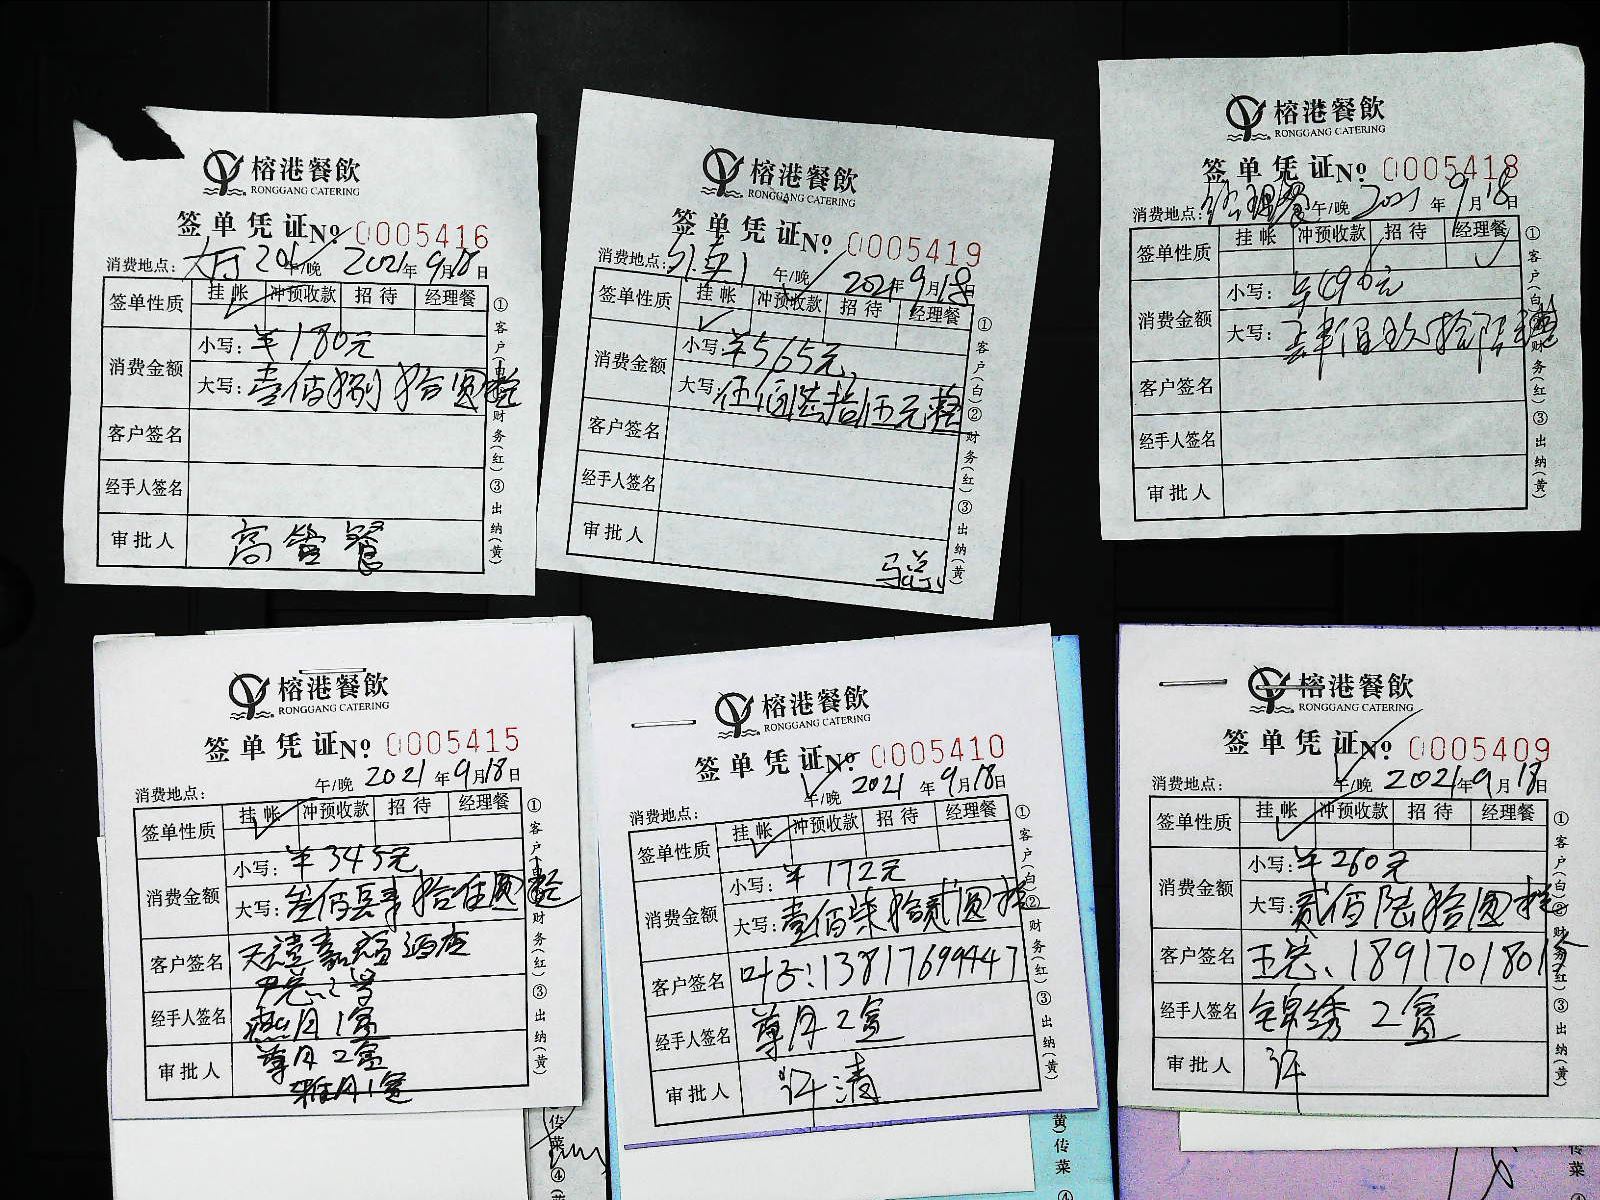 榕港餐飲
RONGGANG CATERING
签单凭证No 0005416
消费地点: 大厅206 午/晚 2021年9月18日
签单性质 挂帐 冲预收款 招待 经理餐
消费金额 小写: ¥180元
大写: 壹佰捌拾圆整
客户签名
经手人签名
审批人 高管餐
①客户(白)②财务(红)③出纳(黄)
榕港餐飲
RONGGANG CATERING
签单凭证No 0005419
消费地点: 午/晚 2021年9月18日
签单性质 挂帐 冲预收款 招待 经理餐
消费金额 小写: ¥565元
大写: 伍佰陆拾伍元整
客户签名
经手人签名
审批人 马总
①客户(白)②财务(红)③出纳(黄)
榕港餐飲
RONGGANG CATERING
签单凭证No 0005418
消费地点: 经理餐 午/晚 2021年9月18日
签单性质 挂帐 冲预收款 招待 经理餐
消费金额 小写:
大写:
客户签名
经手人签名
审批人
①客户(白)②财务(红)③出纳(黄)
榕港餐飲
RONGGANG CATERING
签单凭证No 0005415
消费地点: 午/晚 2021年9月18日
签单性质 挂帐 冲预收款 招待 经理餐
消费金额 小写: ¥345元
大写: 叁佰肆拾伍圆整
客户签名 天禧嘉福酒店
经手人签名 月1宴
审批人 尊月2宴
雅月1宴
①客户(白)②财务(红)③出纳(黄)
传菜④
榕港餐飲
RONGGANG CATERING
签单凭证No 0005410
消费地点: 午/晚 2021年9月18日
签单性质 挂帐 冲预收款 招待 经理餐
消费金额 小写: ¥172元
大写: 壹佰柒拾贰圆整
客户签名 叶总:13817699447
经手人签名 尊月2宴
审批人 许清
①客户(白)②财务(红)③出纳(黄)
黄)传菜④
榕港餐飲
RONGGANG CATERING
签单凭证No 0005409
消费地点: 午/晚 2021年9月18日
签单性质 挂帐 冲预收款 招待 经理餐
消费金额 小写: ¥260元
大写: 贰佰陆拾圆整
客户签名 王总、1891701801
经手人签名 锦绣2宴
审批人 许
①客户(白)②财务(红)③出纳(黄)
传菜④